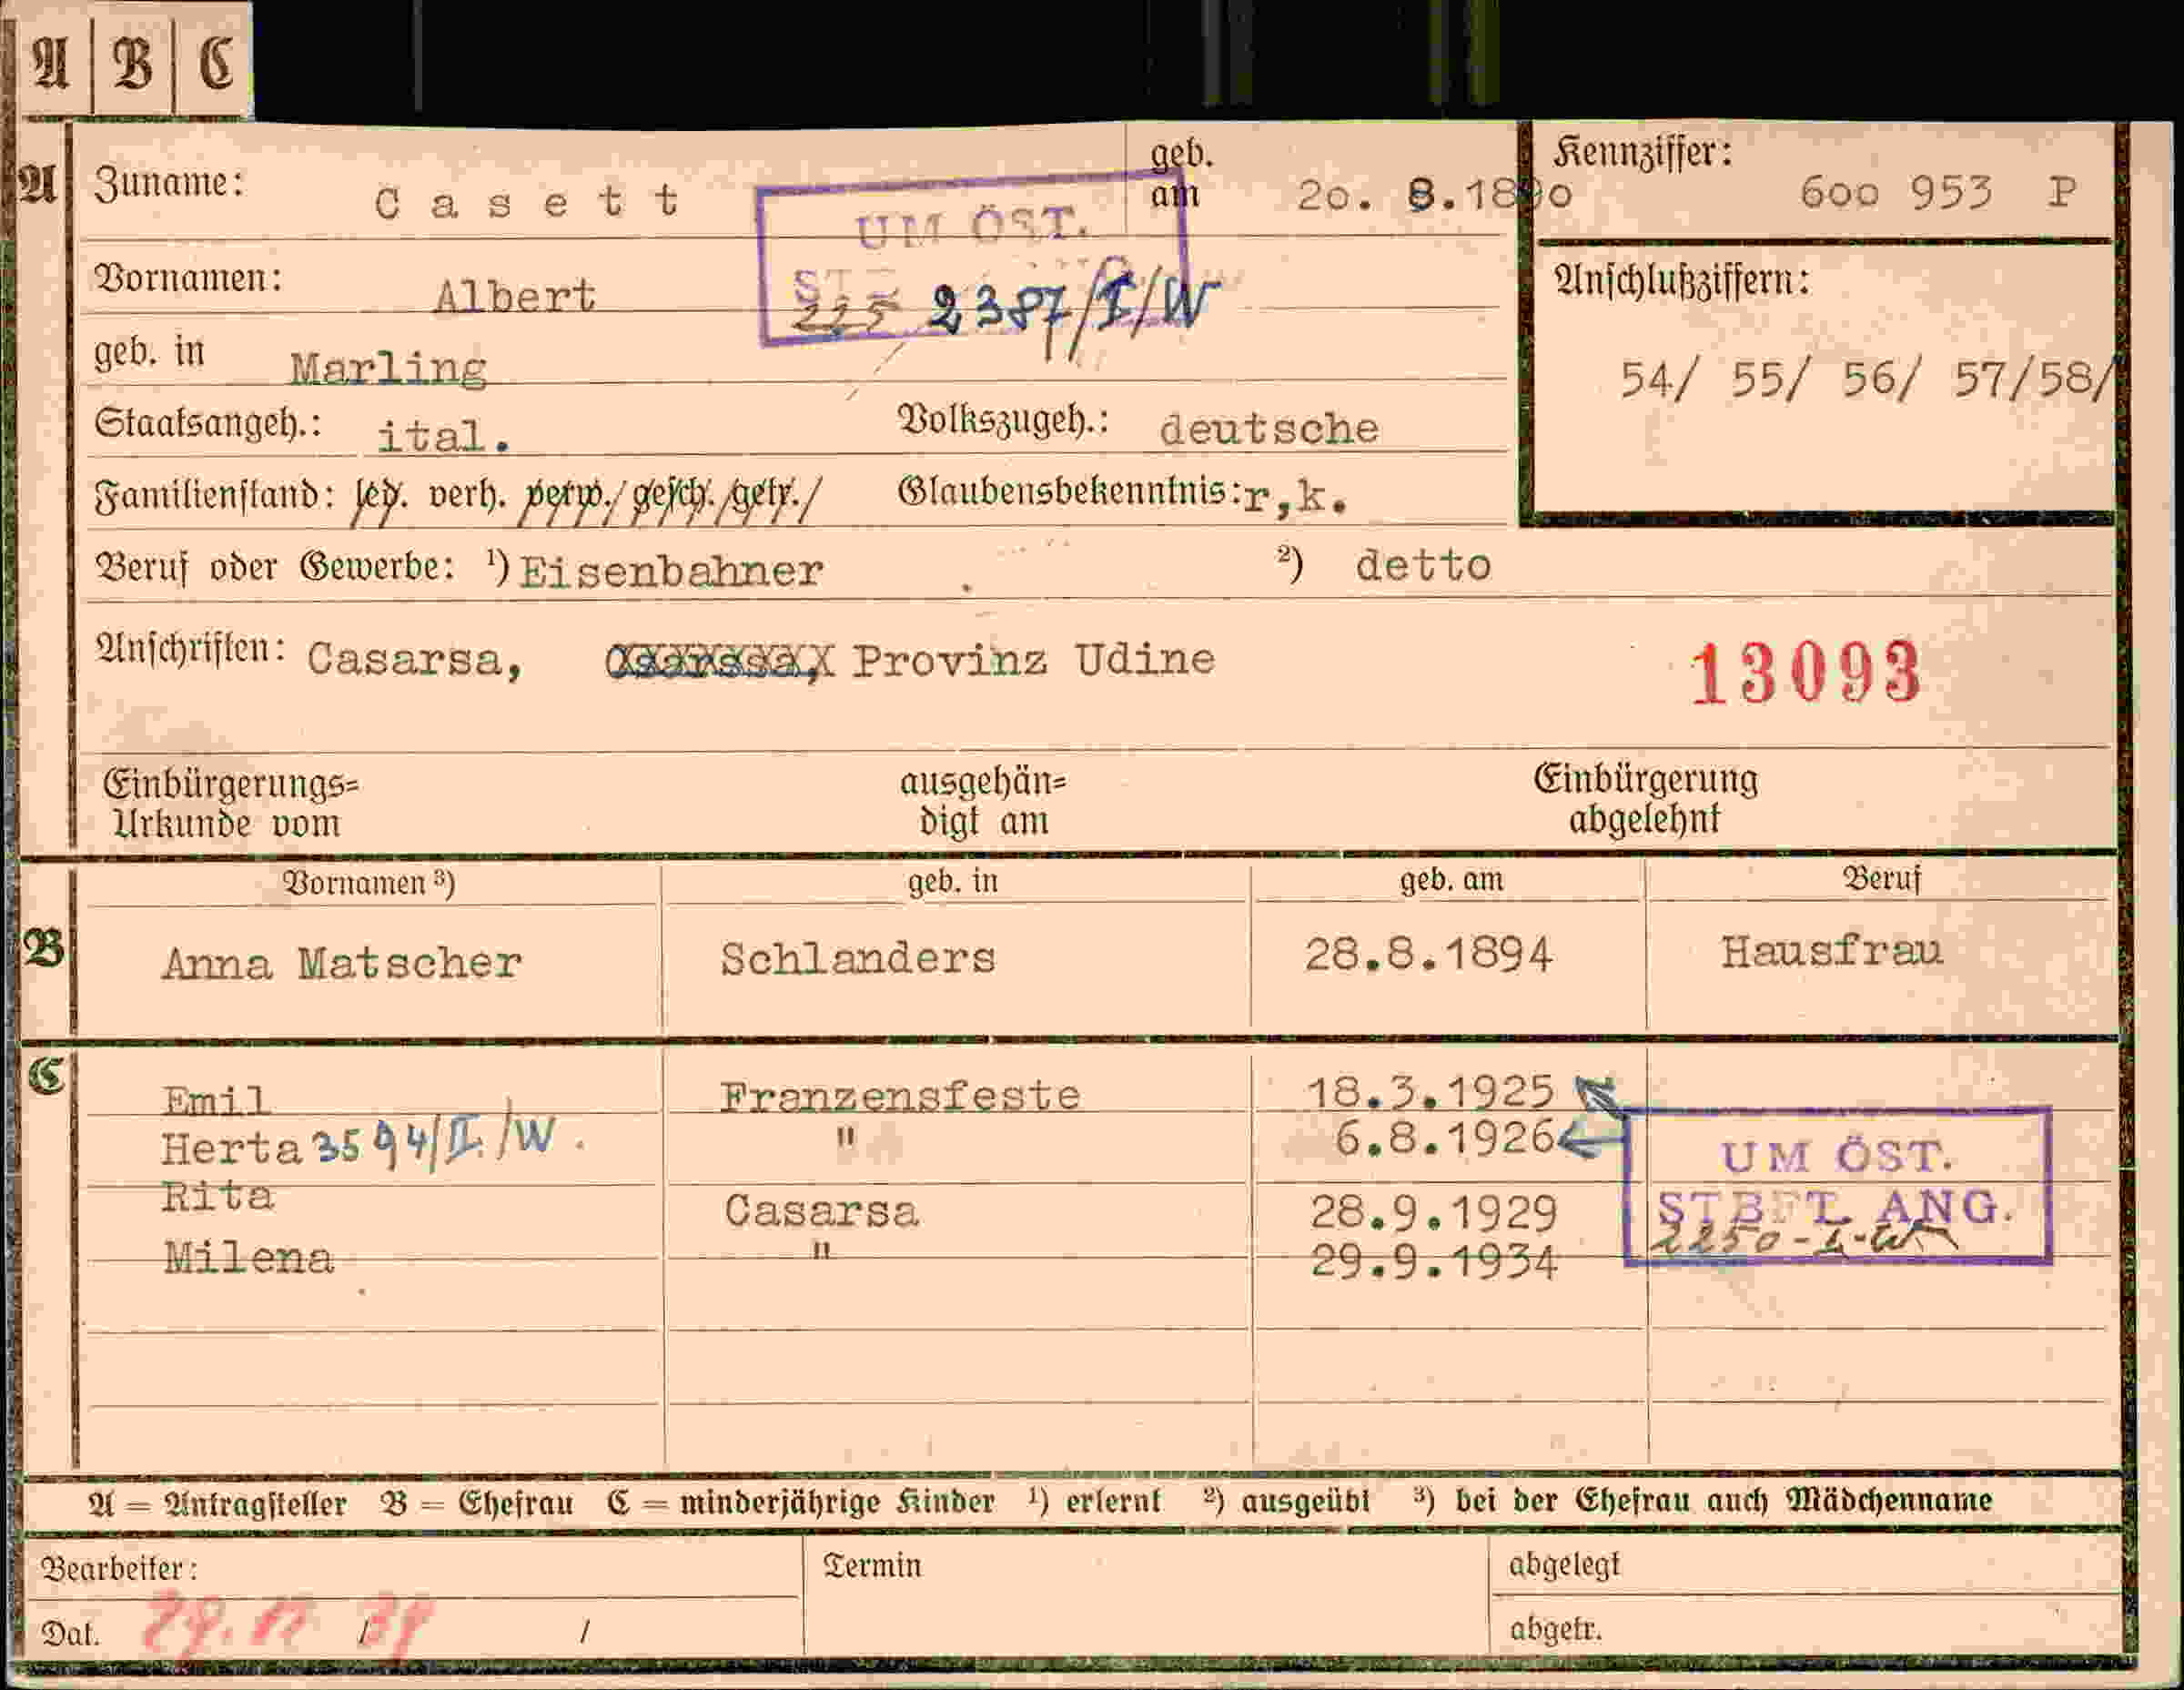 A B C
A Zuname: Casett geb. am 20. 8.1890 Kennziffer: 600 953 P
UM ÖST.
Vornamen: Albert 2387/I/W Anschlußziffern:
geb. in Marling 54/ 55/ 56/ 57/58/
Staatsangeh.: ital. Volkszugeh.: deutsche
Familienstand: led. verh. verw./ gesch./ getr./ Glaubensbekenntnis: r,k.
Beruf oder Gewerbe: ¹) Eisenbahner ²) detto
Anschriften: Casarsa, Provinz Udine 13093
Einbürgerungs= ausgehän= Einbürgerung
Urkunde vom digt am abgelehnt
Vornamen ³) geb. in geb. am Beruf
B Anna Matscher Schlanders 28.8.1894 Hausfrau
C Emil Franzensfeste 18.3.1925
Herta 3594/I./W. " 6.8.1926 UM ÖST.
Rita Casarsa 28.9.1929 STBFT. ANG.
Milena " 29.9.1934 2250-I-W
A = Antragsteller B = Ehefrau C = minderjährige Kinder ¹) erlernt ²) ausgeübt ³) bei der Ehefrau auch Mädchenname
Bearbeiter: Termin abgelegt
Dat. 29. 12 / 39 / abgetr.